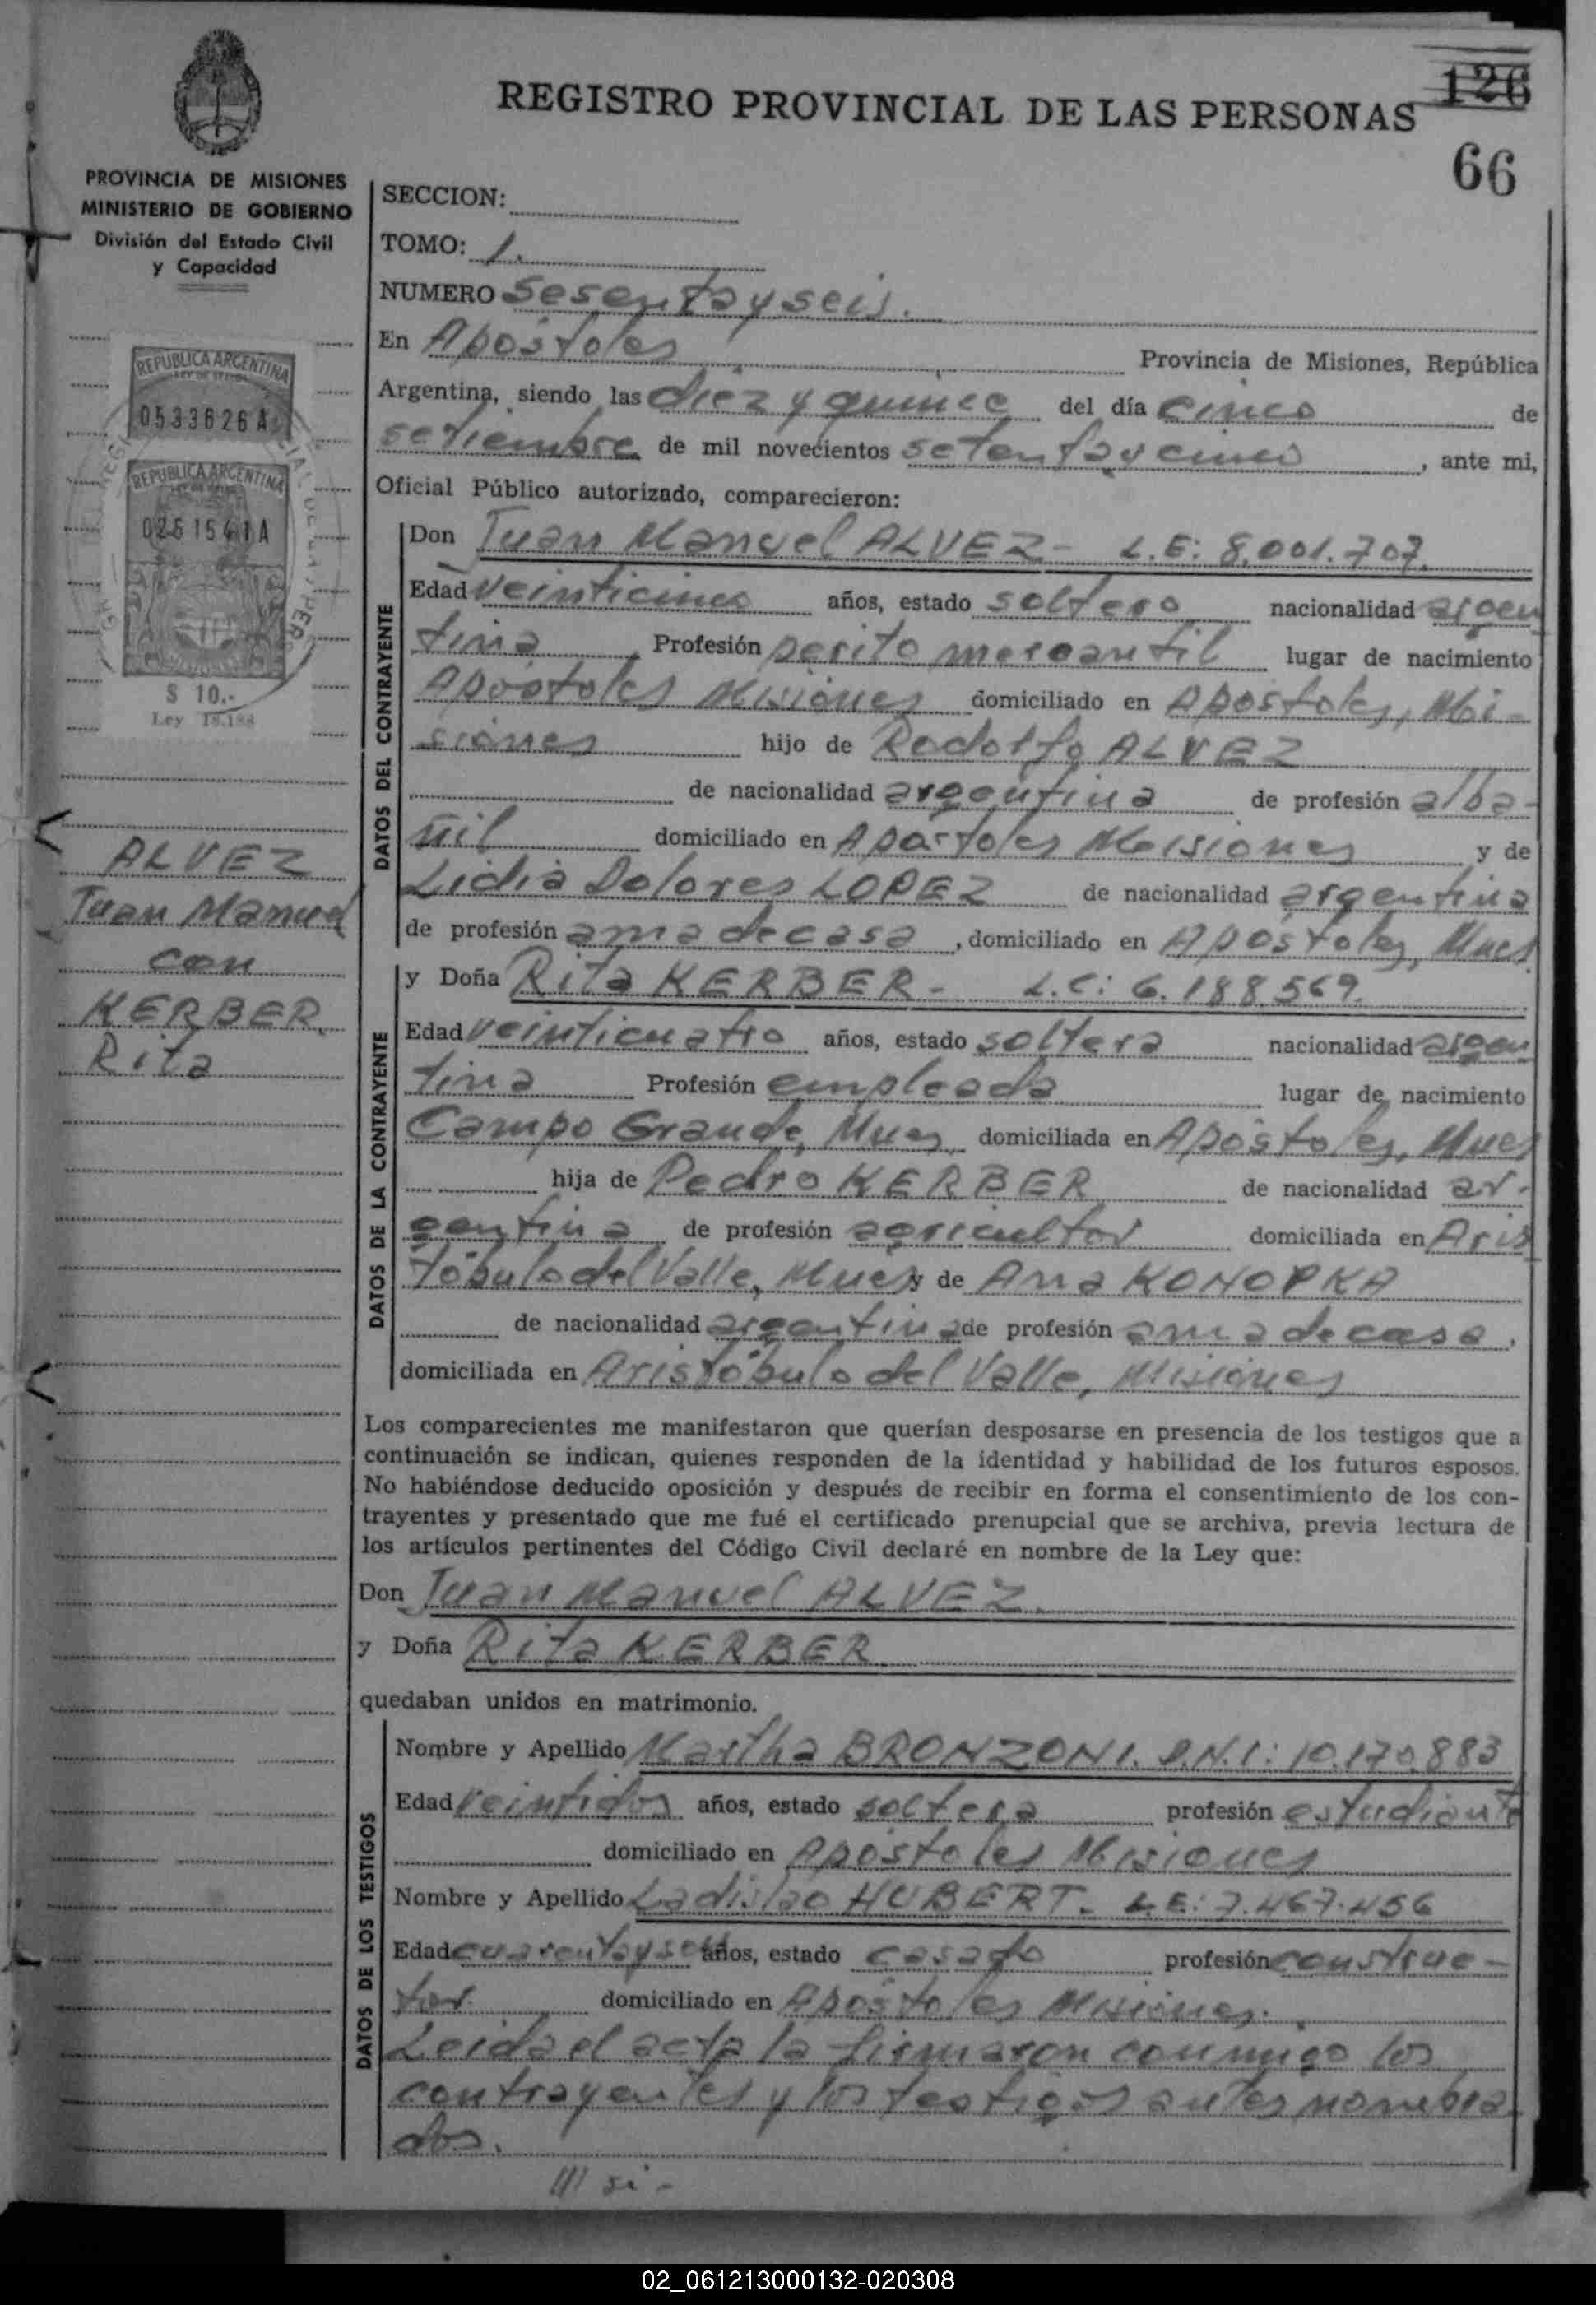 126
REGISTRO PROVINCIAL DE LAS PERSONAS
66
PROVINCIA DE MISIONES
MINISTERIO DE GOBIERNO
División del Estado Civil
y Capacidad
REPUBLICA ARGENTINA
0533626 A
REPUBLICA ARGENTINA
0261541 A
$ 10.-
Ley 18.188
ALVEZ
Juan Manuel
con
KERBER
Rita
SECCION:
TOMO: 1.
NUMERO Sesenta y seis.
En Apóstoles Provincia de Misiones, República
Argentina, siendo las diez y quince del día cinco de
setiembre de mil novecientos setenta y cinco, ante mi,
Oficial Público autorizado, comparecieron:
DATOS DEL CONTRAYENTE
Don Juan Manuel ALVEZ - L.E: 8.001.707.
Edad veinticinco años, estado soltero nacionalidad argen
tina Profesión perito mercantil lugar de nacimiento
Apóstoles Misiones domiciliado en Apóstoles, Mi-
siones hijo de Rodolfo ALVEZ
de nacionalidad argentina de profesión alba-
ñil domiciliado en Apóstoles Misiones y de
Lidia Dolores LOPEZ de nacionalidad argentina
de profesión ama de casa, domiciliado en Apóstoles, Mnes
DATOS DE LA CONTRAYENTE
y Doña Rita KERBER - L.C: 6.188.569.
Edad veinticuatro años, estado soltera nacionalidad argen
tina Profesión empleada lugar de nacimiento
Campo Grande, Mnes, domiciliada en Apóstoles, Mnes
hija de Pedro KERBER de nacionalidad ar-
gentina de profesión agricultor domiciliada en Aris
tóbulo del Valle, Mnes y de Ana KONOPKA
de nacionalidad argentina de profesión ama de casa,
domiciliada en Aristóbulo del Valle, Misiones
Los comparecientes me manifestaron que querían desposarse en presencia de los testigos que a
continuación se indican, quienes responden de la identidad y habilidad de los futuros esposos.
No habiéndose deducido oposición y después de recibir en forma el consentimiento de los con-
trayentes y presentado que me fué el certificado prenupcial que se archiva, previa lectura de
los artículos pertinentes del Código Civil declaré en nombre de la Ley que:
Don Juan Manuel ALVEZ
y Doña Rita KERBER
quedaban unidos en matrimonio.
DATOS DE LOS TESTIGOS
Nombre y Apellido Martha BRONZONI. D.N.I: 10.170.883
Edad veintidos años, estado soltera profesión estudiante
domiciliado en Apóstoles Misiones
Nombre y Apellido Ladislao HUBERT. L.E: 7.467.456
Edad cuarenta y seis años, estado casado profesión construc-
tor domiciliado en Apóstoles Misiones.
Leida el acta la firmaron conmigo los
contrayentes y los testigos antes nombra
dos.
02_061213000132-020308